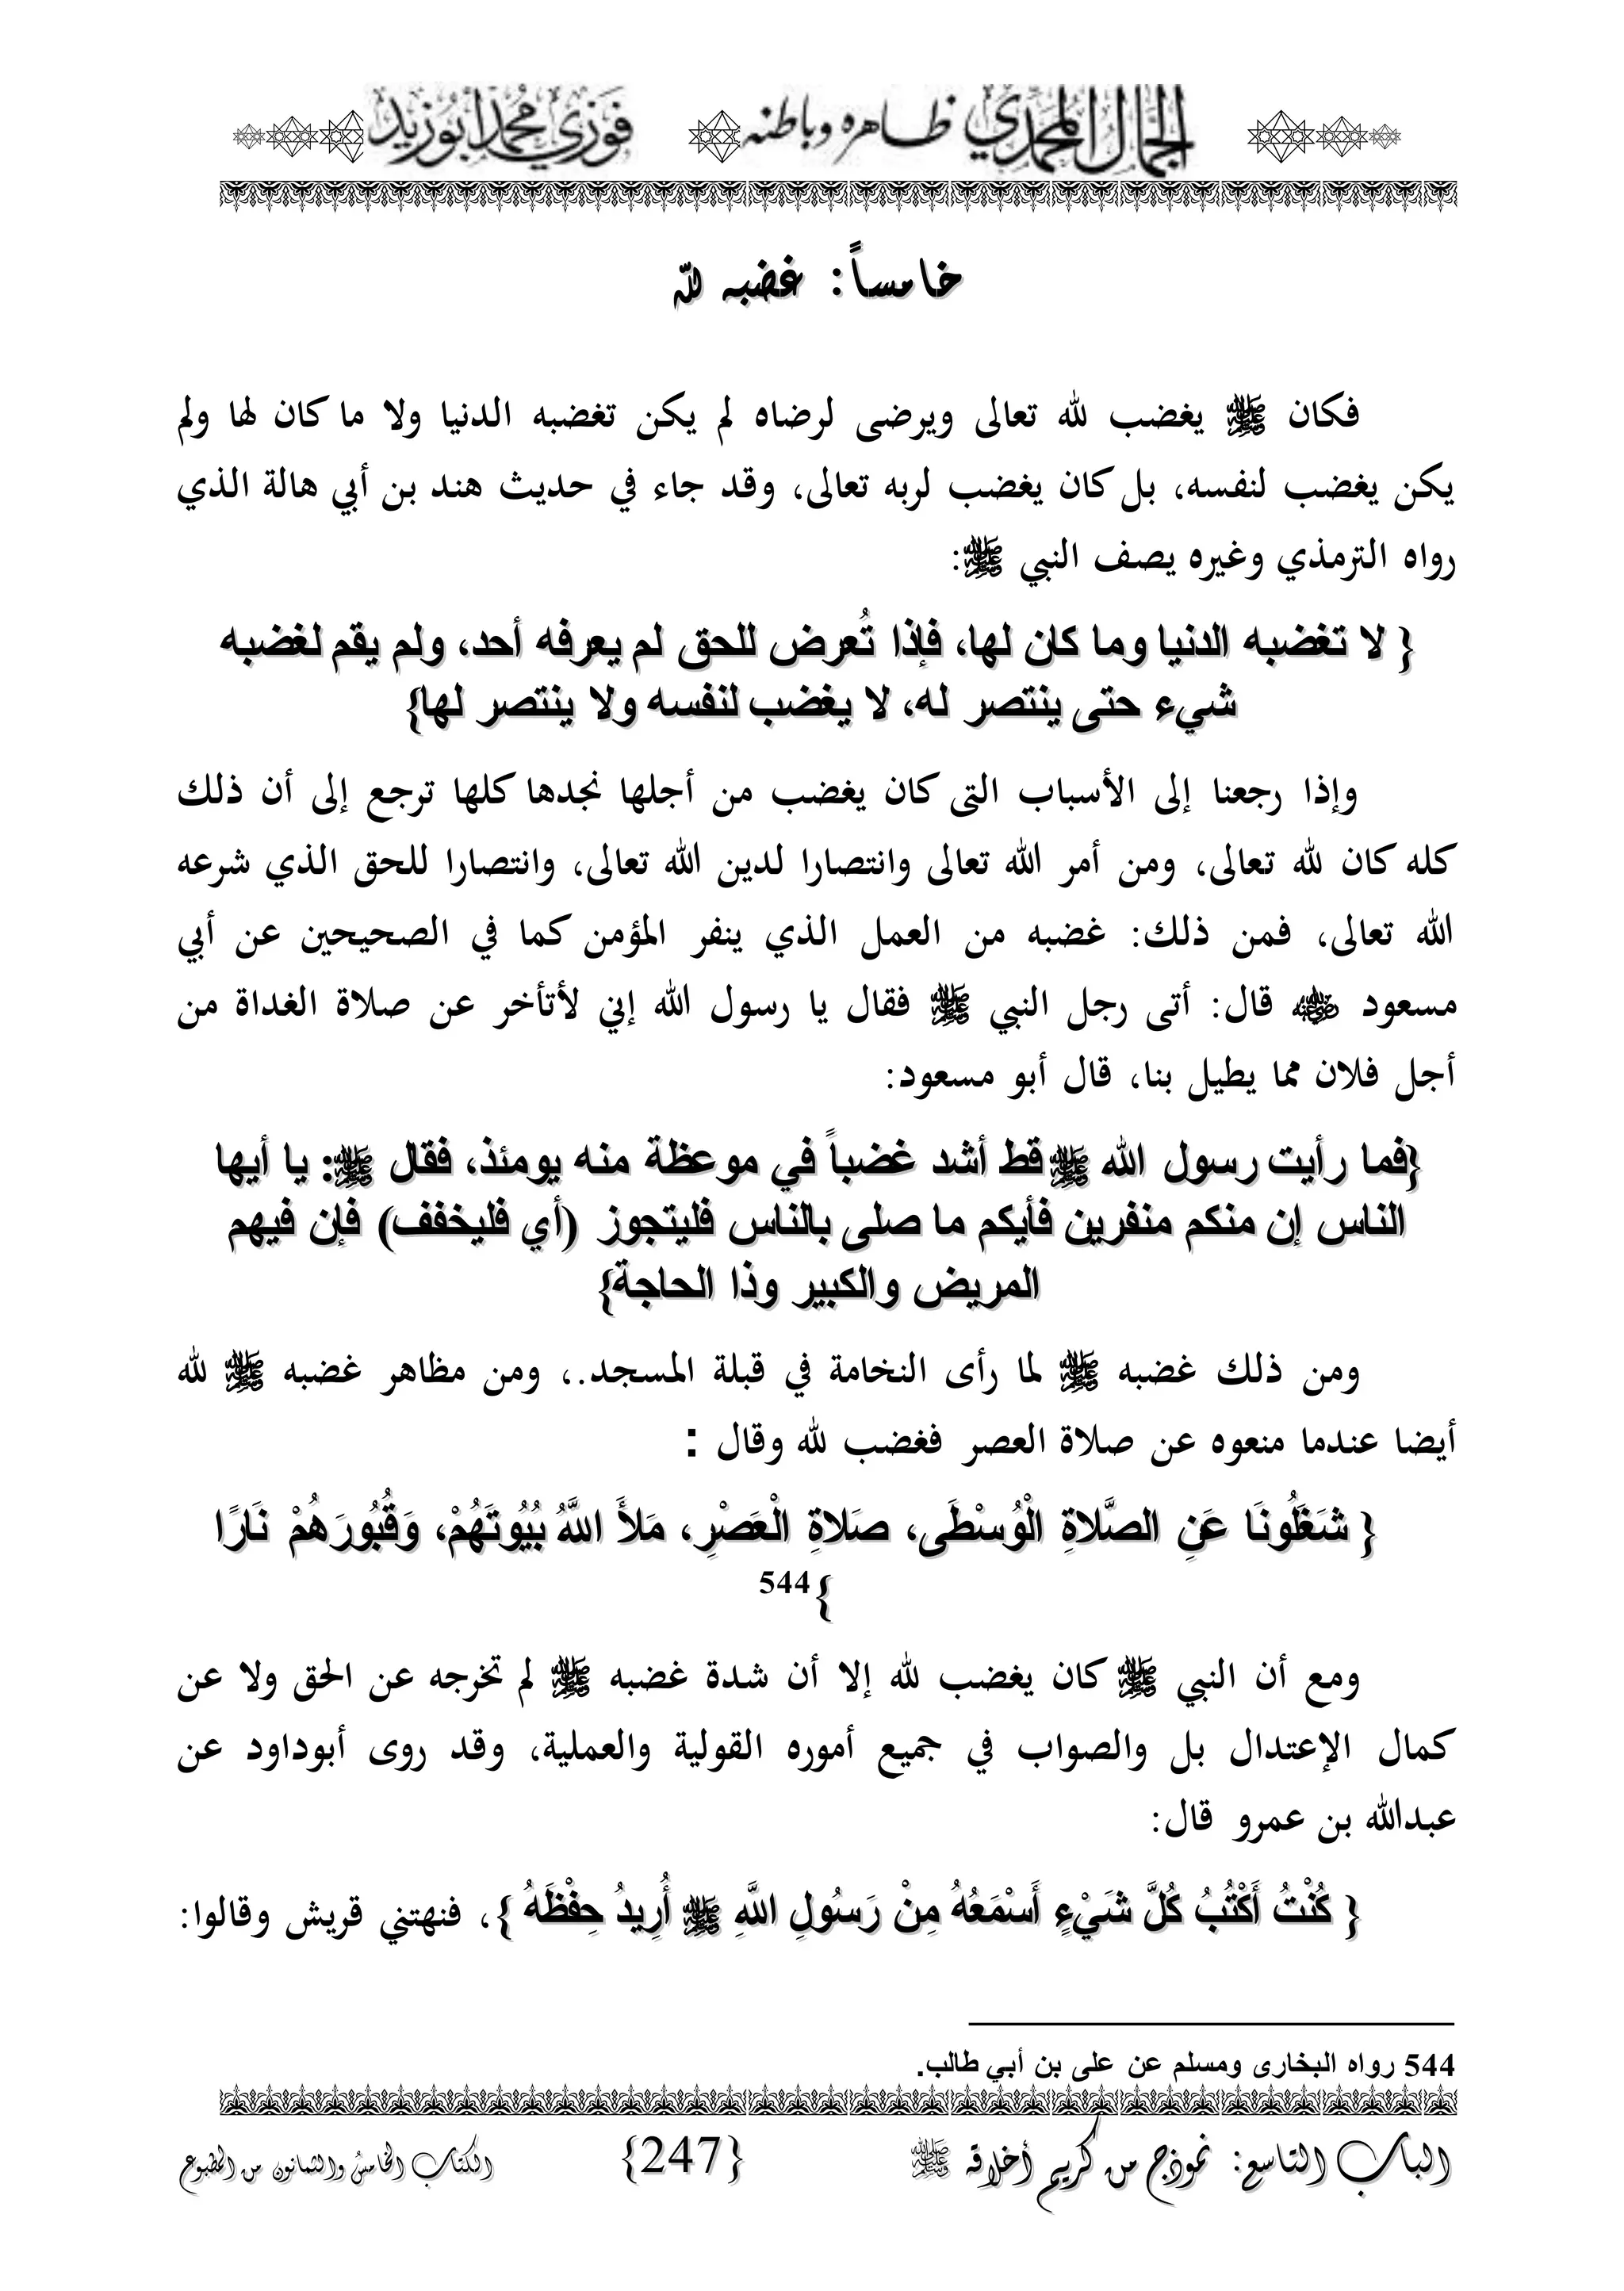 الجمال المحمدي ظاهره وباطنه فوزي محمد أبوزيد
خامساً: غضبه لله
فكان ﷺ يغضب لله تعالى ويرضى لرضاه لم يكن تغضبه الدنيا ولا ما كان لها ولم
يكن يغضب لنفسه، بل كان يغضب لربه تعالى، وقد جاء في حديث هند بن أبي هالة الذي
رواه الترمذي وغيره يصف النبي ﷺ:
{ لا تغضبه الدنيا وما كان لها، فإذا تُعرض للحق لم يعرفه أحد، ولم يقم لغضبه
شيء حتى ينتصر له، لا يغضب لنفسه ولا ينتصر لها}
وإذا رجعنا إلى الأسباب التى كان يغضب من أجلها نجدها كلها ترجع إلى أن ذلك
كله كان لله تعالى، ومن أمر الله تعالى وانتصارا لدين الله تعالى، وانتصارا للحق الذي شرعه
الله تعالى، فمن ذلك: غضبه من العمل الذي ينفر المؤمن كما في الصحيحين عن أبي
مسعود ﵁ قال: أتى رجل النبي ﷺ فقال يا رسول الله إني لأتأخر عن صلاة الغداة من
أجل فلان مما يطيل بنا، قال أبو مسعود:
{فما رأيت رسول الله ﷺ قط أشد غضباً في موعظة منه يومئذ، فقال ﷺ: يا أيها
الناس إن منكم منفرين فأيكم ما صلى بالناس فليتجوز (أي فليخفف) فإن فيهم
المريض والكبير وذا الحاجة}
ومن ذلك غضبه ﷺ لما رأى النخامة في قبلة المسجد.، ومن مظاهر غضبه ﷺ لله
أيضا عندما منعوه عن صلاة العصر فغضب لله وقال :
{ شَغَلُونَا عَنِ الصَّلاةِ الْوُسْطَى، صَلاةِ الْعَصْرِ، مَلأَ اللَّهُ بُيُوتَهُمْ، وَقُبُورَهُمْ نَارًا
}544
ومع أن النبي ﷺ كان يغضب لله إلا أن شدة غضبه ﷺ لم تخرجه عن الحق ولا عن
كمال الإعتدال بل والصواب في جميع أموره القولية والعملية، وقد روى أبوداود عن
عبدالله بن عمرو قال:
{ كُنْتُ أَكْتُبُ كُلَّ شَيْءٍ أَسْمَعُهُ مِنْ رَسُولِ اللَّهِ ﷺ أُرِيدُ حِفْظَهُ }، فنهتني قريش وقالوا:
544 رواه البخارى ومسلم عن على بن أبي طالب.
الباب التاسع: نموذج من كريم أخلاقه ﷺ {247} الكتاب الخامس والثمانون من المطبوع